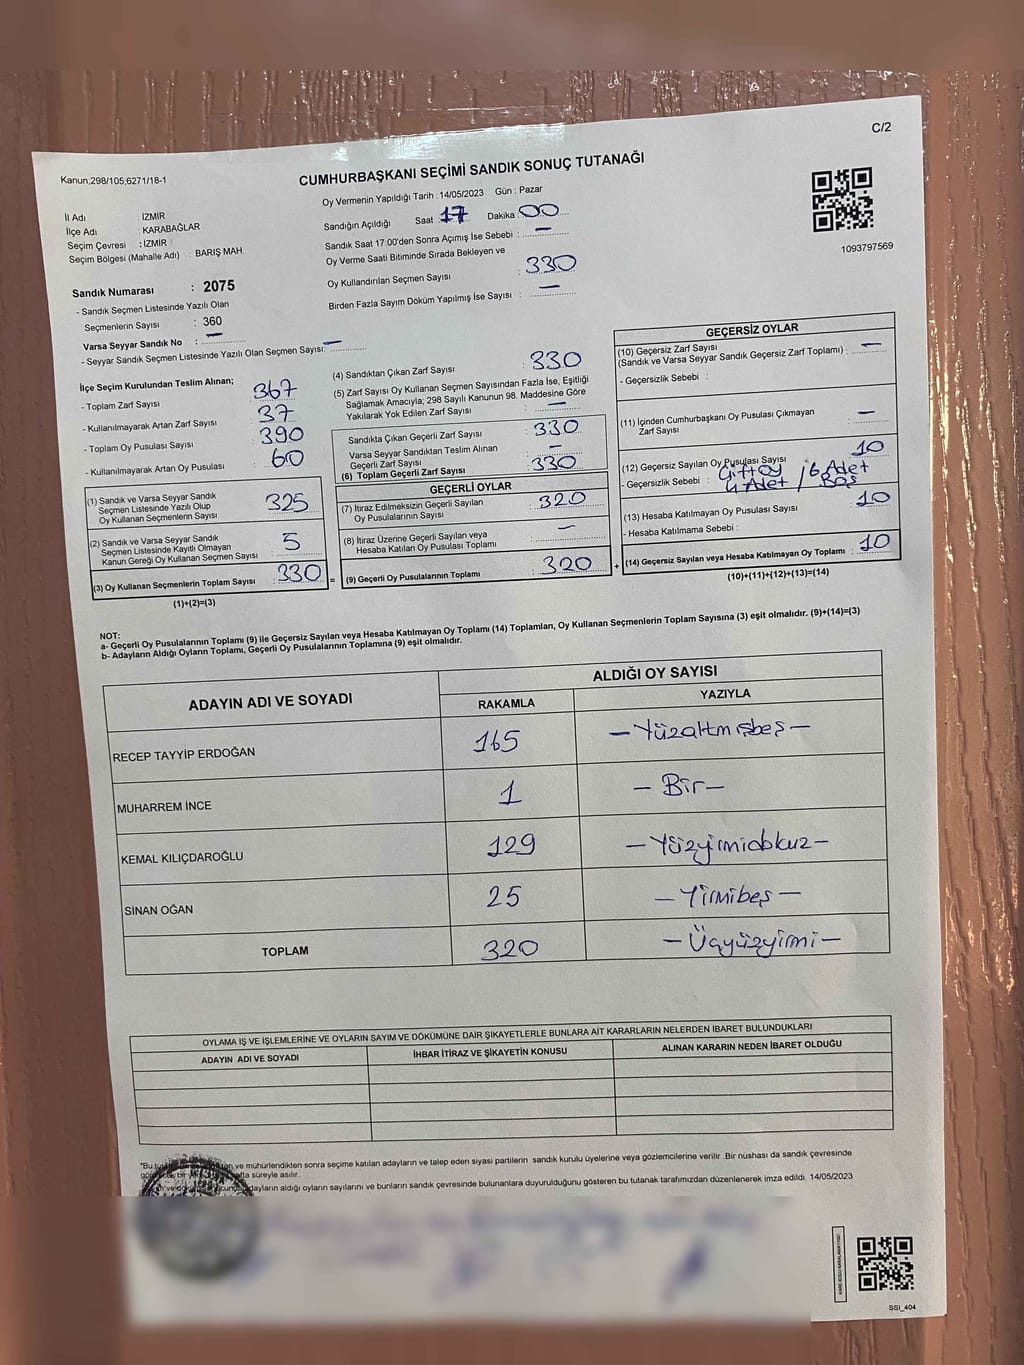 C/2
Kanun,298/105,6271/18-1
CUMHURBAŞKANI SEÇİMİ SANDIK SONUÇ TUTANAĞI
Oy Vermenin Yapıldığı Tarih : 14/05/2023 Gün : Pazar
İl Adı : İZMİR
İlçe Adı : KARABAĞLAR
Seçim Çevresi : İZMİR
Seçim Bölgesi (Mahalle Adı) : BARIŞ MAH
Sandığın Açıldığı Saat 17 Dakika : 00
Sandık Saat 17.00'den Sonra Açımış İse Sebebi : —
Oy Verme Saati Bitiminde Sırada Bekleyen ve
Oy Kullandırılan Seçmen Sayısı : 330
Birden Fazla Sayım Döküm Yapılmış İse Sayısı : —
1093797569
Sandık Numarası : 2075
- Sandık Seçmen Listesinde Yazılı Olan
Seçmenlerin Sayısı : 360
Varsa Seyyar Sandık No : —
- Seyyar Sandık Seçmen Listesinde Yazılı Olan Seçmen Sayısı: —
İlçe Seçim Kurulundan Teslim Alınan;
- Toplam Zarf Sayısı : 367
- Kullanılmayarak Artan Zarf Sayısı : 37
- Toplam Oy Pusulası Sayısı : 390
- Kullanılmayarak Artan Oy Pusulası : 60
(1) Sandık ve Varsa Seyyar Sandık
Seçmen Listesinde Yazılı Olup
Oy Kullanan Seçmenlerin Sayısı : 325
(2) Sandık ve Varsa Seyyar Sandık
Seçmen Listesinde Kayıtlı Olmayan
Kanun Gereği Oy Kullanan Seçmen Sayısı : 5
(3) Oy Kullanan Seçmenlerin Toplam Sayısı : 330 =
(1)+(2)=(3)
(4) Sandıktan Çıkan Zarf Sayısı : 330
(5) Zarf Sayısı Oy Kullanan Seçmen Sayısından Fazla İse, Eşitliği
Sağlamak Amacıyla; 298 Sayılı Kanunun 98. Maddesine Göre
Yakılarak Yok Edilen Zarf Sayısı : —
Sandıkta Çıkan Geçerli Zarf Sayısı : 330
Varsa Seyyar Sandıktan Teslim Alınan
Geçerli Zarf Sayısı : —
(6) Toplam Geçerli Zarf Sayısı : 330
GEÇERLİ OYLAR
(7) İtiraz Edilmeksizin Geçerli Sayılan
Oy Pusulalarının Sayısı : 320
(8) İtiraz Üzerine Geçerli Sayılan veya
Hesaba Katılan Oy Pusulası Toplamı : —
(9) Geçerli Oy Pusulalarının Toplamı : 320 +
GEÇERSİZ OYLAR
(10) Geçersiz Zarf Sayısı
(Sandık ve Varsa Seyyar Sandık Geçersiz Zarf Toplamı) : —
- Geçersizlik Sebebi :
(11) İçinden Cumhurbaşkanı Oy Pusulası Çıkmayan
Zarf Sayısı : —
(12) Geçersiz Sayılan Oy Pusulası Sayısı : 10
- Geçersizlik Sebebi : Çift Oy / 6 Adet
4 Adet / Boş
(13) Hesaba Katılmayan Oy Pusulası Sayısı : 10
- Hesaba Katılmama Sebebi :
(14) Geçersiz Sayılan veya Hesaba Katılmayan Oy Toplamı : 10
(10)+(11)+(12)+(13)=(14)
NOT:
a- Geçerli Oy Pusulalarının Toplamı (9) ile Geçersiz Sayılan veya Hesaba Katılmayan Oy Toplamı (14) Toplamları, Oy Kullanan Seçmenlerin Toplam Sayısına (3) eşit olmalıdır. (9)+(14)=(3)
b- Adayların Aldığı Oyların Toplamı, Geçerli Oy Pusulalarının Toplamına (9) eşit olmalıdır.
ADAYIN ADI VE SOYADI
ALDIĞI OY SAYISI
RAKAMLA YAZIYLA
RECEP TAYYİP ERDOĞAN 165 — Yüzaltmışbeş —
MUHARREM İNCE 1 — Bir —
KEMAL KILIÇDAROĞLU 129 — Yüzyirmidokuz —
SİNAN OĞAN 25 — Yirmibeş —
TOPLAM 320 — Üçyüzyirmi —
OYLAMA İŞ VE İŞLEMLERİNE VE OYLARIN SAYIM VE DÖKÜMÜNE DAİR ŞİKAYETLERLE BUNLARA AİT KARARLARIN NELERDEN İBARET BULUNDUKLARI
ADAYIN ADI VE SOYADI İHBAR İTİRAZ VE ŞİKAYETİN KONUSU ALINAN KARARIN NEDEN İBARET OLDUĞU
ve mühürlendikten sonra seçime katılan adayların ve talep eden siyasi partilerin sandık kurulu üyelerine veya gözlemcilerine verilir. Bir nüshası da sandık çevresinde
süreyle asılır.
adayların aldığı oyların sayılarını ve bunların sandık çevresinde bulunanlara duyurulduğunu gösteren bu tutanak tarafımızdan düzenlenerek imza edildi. 14/05/2023
SSI_404